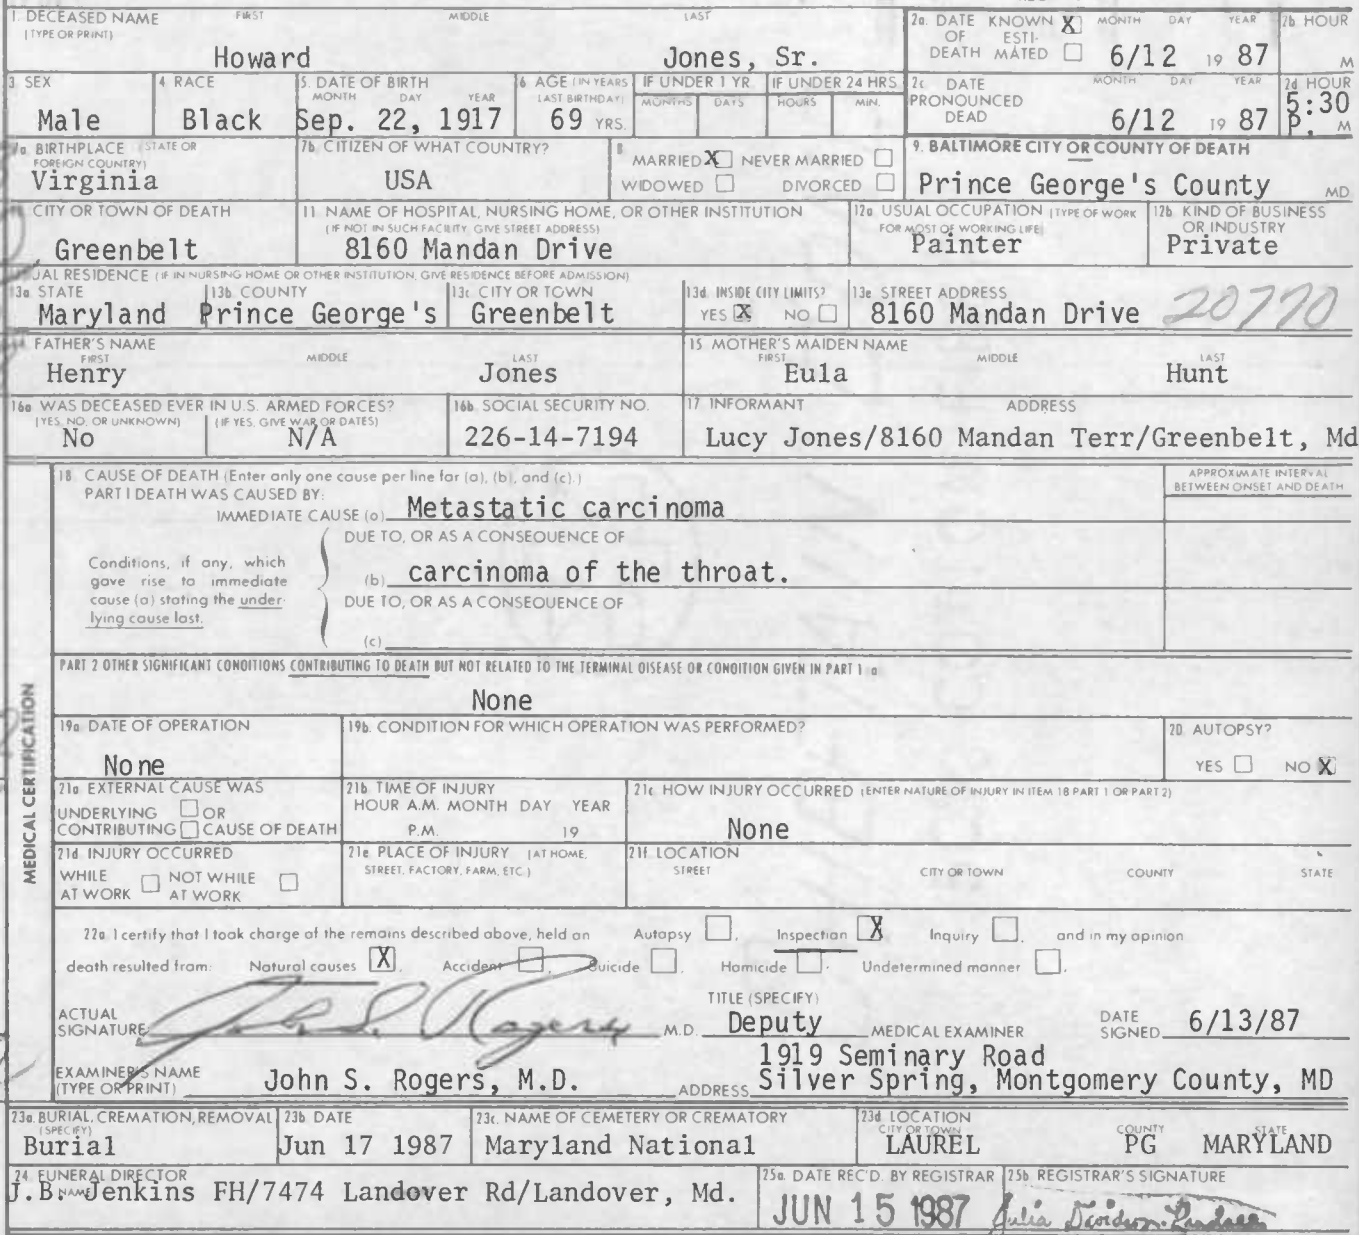 1. DECEASED NAME FIRST MIDDLE LAST
(TYPE OR PRINT)
Howard Jones, Sr.
2a. DATE KNOWN X MONTH DAY YEAR
OF ESTI-
DEATH MATED 6/12 19 87
2b HOUR
M
3 SEX
Male
4 RACE
Black
5. DATE OF BIRTH
MONTH DAY YEAR
Sep. 22, 1917
6 AGE (IN YEARS
LAST BIRTHDAY)
69 YRS.
IF UNDER 1 YR.
MONTHS DAYS
IF UNDER 24 HRS
HOURS MIN.
2c DATE MONTH DAY YEAR
PRONOUNCED
DEAD 6/12 19 87
2d HOUR
5:30
P. M
7a BIRTHPLACE (STATE OR
FOREIGN COUNTRY)
Virginia
7b. CITIZEN OF WHAT COUNTRY?
USA
8
MARRIED X NEVER MARRIED
WIDOWED DIVORCED
9. BALTIMORE CITY OR COUNTY OF DEATH
Prince George's County MD.
CITY OR TOWN OF DEATH
Greenbelt
11. NAME OF HOSPITAL, NURSING HOME, OR OTHER INSTITUTION
(IF NOT IN SUCH FACILITY, GIVE STREET ADDRESS)
8160 Mandan Drive
12a USUAL OCCUPATION (TYPE OF WORK
FOR MOST OF WORKING LIFE)
Painter
12b. KIND OF BUSINESS
OR INDUSTRY
Private
UAL RESIDENCE (IF IN NURSING HOME OR OTHER INSTITUTION, GIVE RESIDENCE BEFORE ADMISSION)
13a STATE
Maryland
13b. COUNTY
Prince George's
13c CITY OR TOWN
Greenbelt
13d. INSIDE CITY LIMITS?
YES X NO
13e STREET ADDRESS
8160 Mandan Drive 20770
FATHER'S NAME
FIRST MIDDLE LAST
Henry Jones
15 MOTHER'S MAIDEN NAME
FIRST MIDDLE LAST
Eula Hunt
16a WAS DECEASED EVER IN U.S. ARMED FORCES?
(YES, NO, OR UNKNOWN) (IF YES, GIVE WAR OR DATES)
No N/A
16b. SOCIAL SECURITY NO.
226-14-7194
17 INFORMANT ADDRESS
Lucy Jones/8160 Mandan Terr/Greenbelt, Md
MEDICAL CERTIFICATION
18 CAUSE OF DEATH (Enter only one cause per line for (a), (b), and (c).)
PART I DEATH WAS CAUSED BY:
IMMEDIATE CAUSE (a) Metastatic carcinoma
APPROXIMATE INTERVAL
BETWEEN ONSET AND DEATH
DUE TO, OR AS A CONSEQUENCE OF
Conditions, if any, which
gave rise to immediate
cause (a) stating the under-
lying cause last.
(b) carcinoma of the throat.
DUE TO, OR AS A CONSEQUENCE OF
(c)
PART 2 OTHER SIGNIFICANT CONDITIONS CONTRIBUTING TO DEATH BUT NOT RELATED TO THE TERMINAL DISEASE OR CONDITION GIVEN IN PART 1 a
None
19a DATE OF OPERATION
None
19b. CONDITION FOR WHICH OPERATION WAS PERFORMED?
20 AUTOPSY?
YES NO X
21a EXTERNAL CAUSE WAS
UNDERLYING OR
CONTRIBUTING CAUSE OF DEATH
21b TIME OF INJURY
HOUR A.M. MONTH DAY YEAR
P.M. 19
21c HOW INJURY OCCURRED (ENTER NATURE OF INJURY IN ITEM 18 PART 1 OR PART 2)
None
21d INJURY OCCURRED
WHILE NOT WHILE
AT WORK AT WORK
21e PLACE OF INJURY (AT HOME,
STREET, FACTORY, FARM, ETC.)
21f LOCATION
STREET CITY OR TOWN COUNTY STATE
22a I certify that I took charge of the remains described above, held an Autopsy , Inspection X Inquiry , and in my opinion
death resulted from: Natural causes X , Accident , Suicide , Homicide , Undetermined manner .
ACTUAL
SIGNATURE John S. Rogers M.D.
TITLE (SPECIFY)
Deputy MEDICAL EXAMINER
DATE
SIGNED 6/13/87
EXAMINER'S NAME
(TYPE OR PRINT) John S. Rogers, M.D.
1919 Seminary Road
ADDRESS Silver Spring, Montgomery County, MD
23a. BURIAL, CREMATION, REMOVAL
(SPECIFY)
Burial
23b DATE
Jun 17 1987
23c. NAME OF CEMETERY OR CREMATORY
Maryland National
23d LOCATION
CITY OR TOWN COUNTY STATE
LAUREL PG MARYLAND
24 FUNERAL DIRECTOR
NAME
J.B. Jenkins FH/7474 Landover Rd/Landover, Md.
25a. DATE REC'D. BY REGISTRAR
JUN 15 1987
25b. REGISTRAR'S SIGNATURE
Julia Davidson-Randall